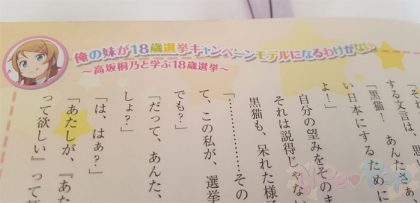 俺の妹が18歳選挙キャンペーンモデルになるわけがない
～高坂桐乃と学ぶ18歳選挙～
は、思
する文言は、
「黒猫！　あんたさぁ
い日本にするために
自分の望みをそのま
それは説得じゃな
黒猫も、呆れた様
「…………その
て、この私が、選挙
でも？」
「だって、あんた、
しょ？」
「は、はぁ？」
「あたしが、『あた
って欲しい』って